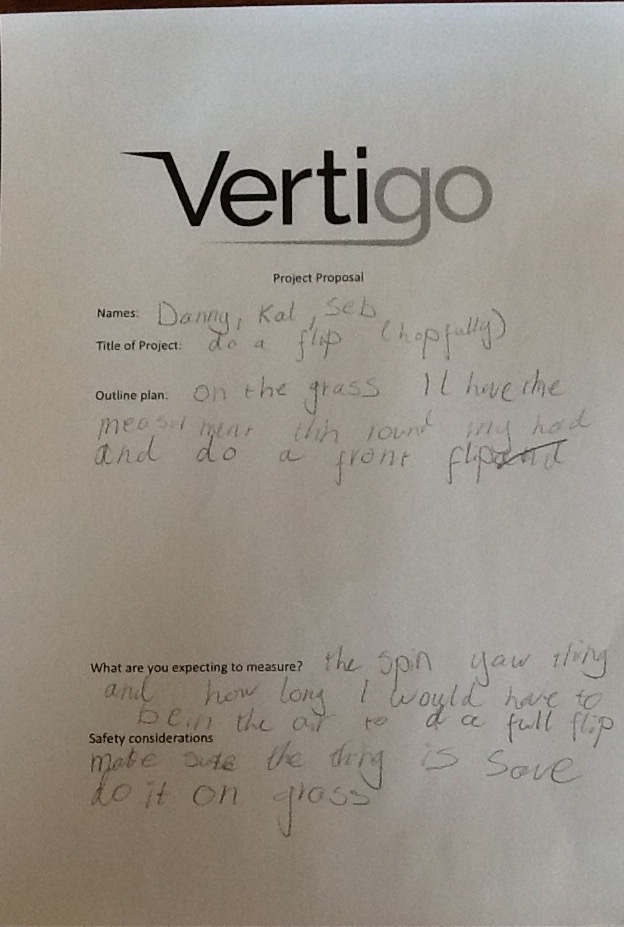 Vertigo
Project Proposal
Names: Danny, Kal, Seb
Title of Project: do a flip (hopfully)
Outline plan: on the grass I'l have the
measurment thin round my head
and do a front flip
What are you expecting to measure? the spin yaw thing
and how long I would have to
be in the air to do a full flip
Safety considerations
make sure the thing is save
do it on grass